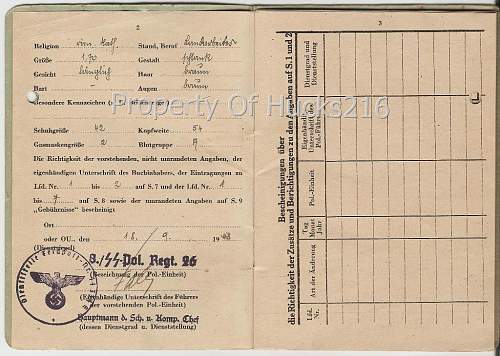 2
Religion röm. Kath. Stand, Beruf Landarbeiter
Größe 1,70 Gestalt schlank
Gesicht länglich Haar braun
Bart - Augen braun
Besondere Kennzeichen
Property Of Hucks216
Schuhgröße 42 Kopfweite 54
Gasmaskengröße 2 Blutgruppe A
Die Richtigkeit der vorstehenden, nicht umrandeten Angaben, der
eigenhändigen Unterschrift des Buchinhabers, der Eintragungen zu
Lfd. Nr. 1 bis 2 auf S. 7 und der Lfd. Nr. 1
bis 7 auf S. 8 sowie der umrandeten Angaben auf S. 9
„Gebührnisse“ bescheinigt
Ort
oder OU., den 18. / 9. 194
(Dienstsiegel)
8./SS-Pol. Regt. 26
(Bezeichnung der Pol.-Einheit)
(Eigenhändige Unterschrift des Führers
der vorstehenden Pol.-Einheit)
Hauptmann d. Sch. u. Komp. Chef
(dessen Dienstgrad u. Dienststellung)
Dienststelle Feldpost-Nr.
3
Bescheinigungen über
die Richtigkeit der Zusätze und Berichtigungen zu den Angaben auf S. 1 und 2
Lfd. Nr.
Art der Änderung
Tag Monat Jahr
Pol.-Einheit
Eigenhändige Unterschrift des Pol.-Führers
Dienstgrad und Dienststellung